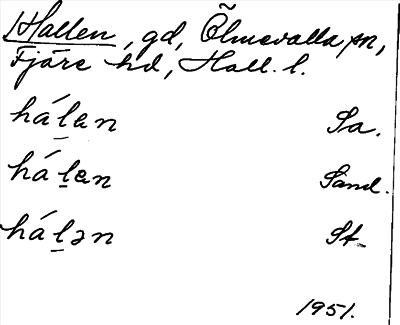 Hallen, gd, Ölmevalla sn,
Fjäre hd, Hall. l.
há l̠en Sa.
há l̠en Sand.
há l̠ən St.
1951.